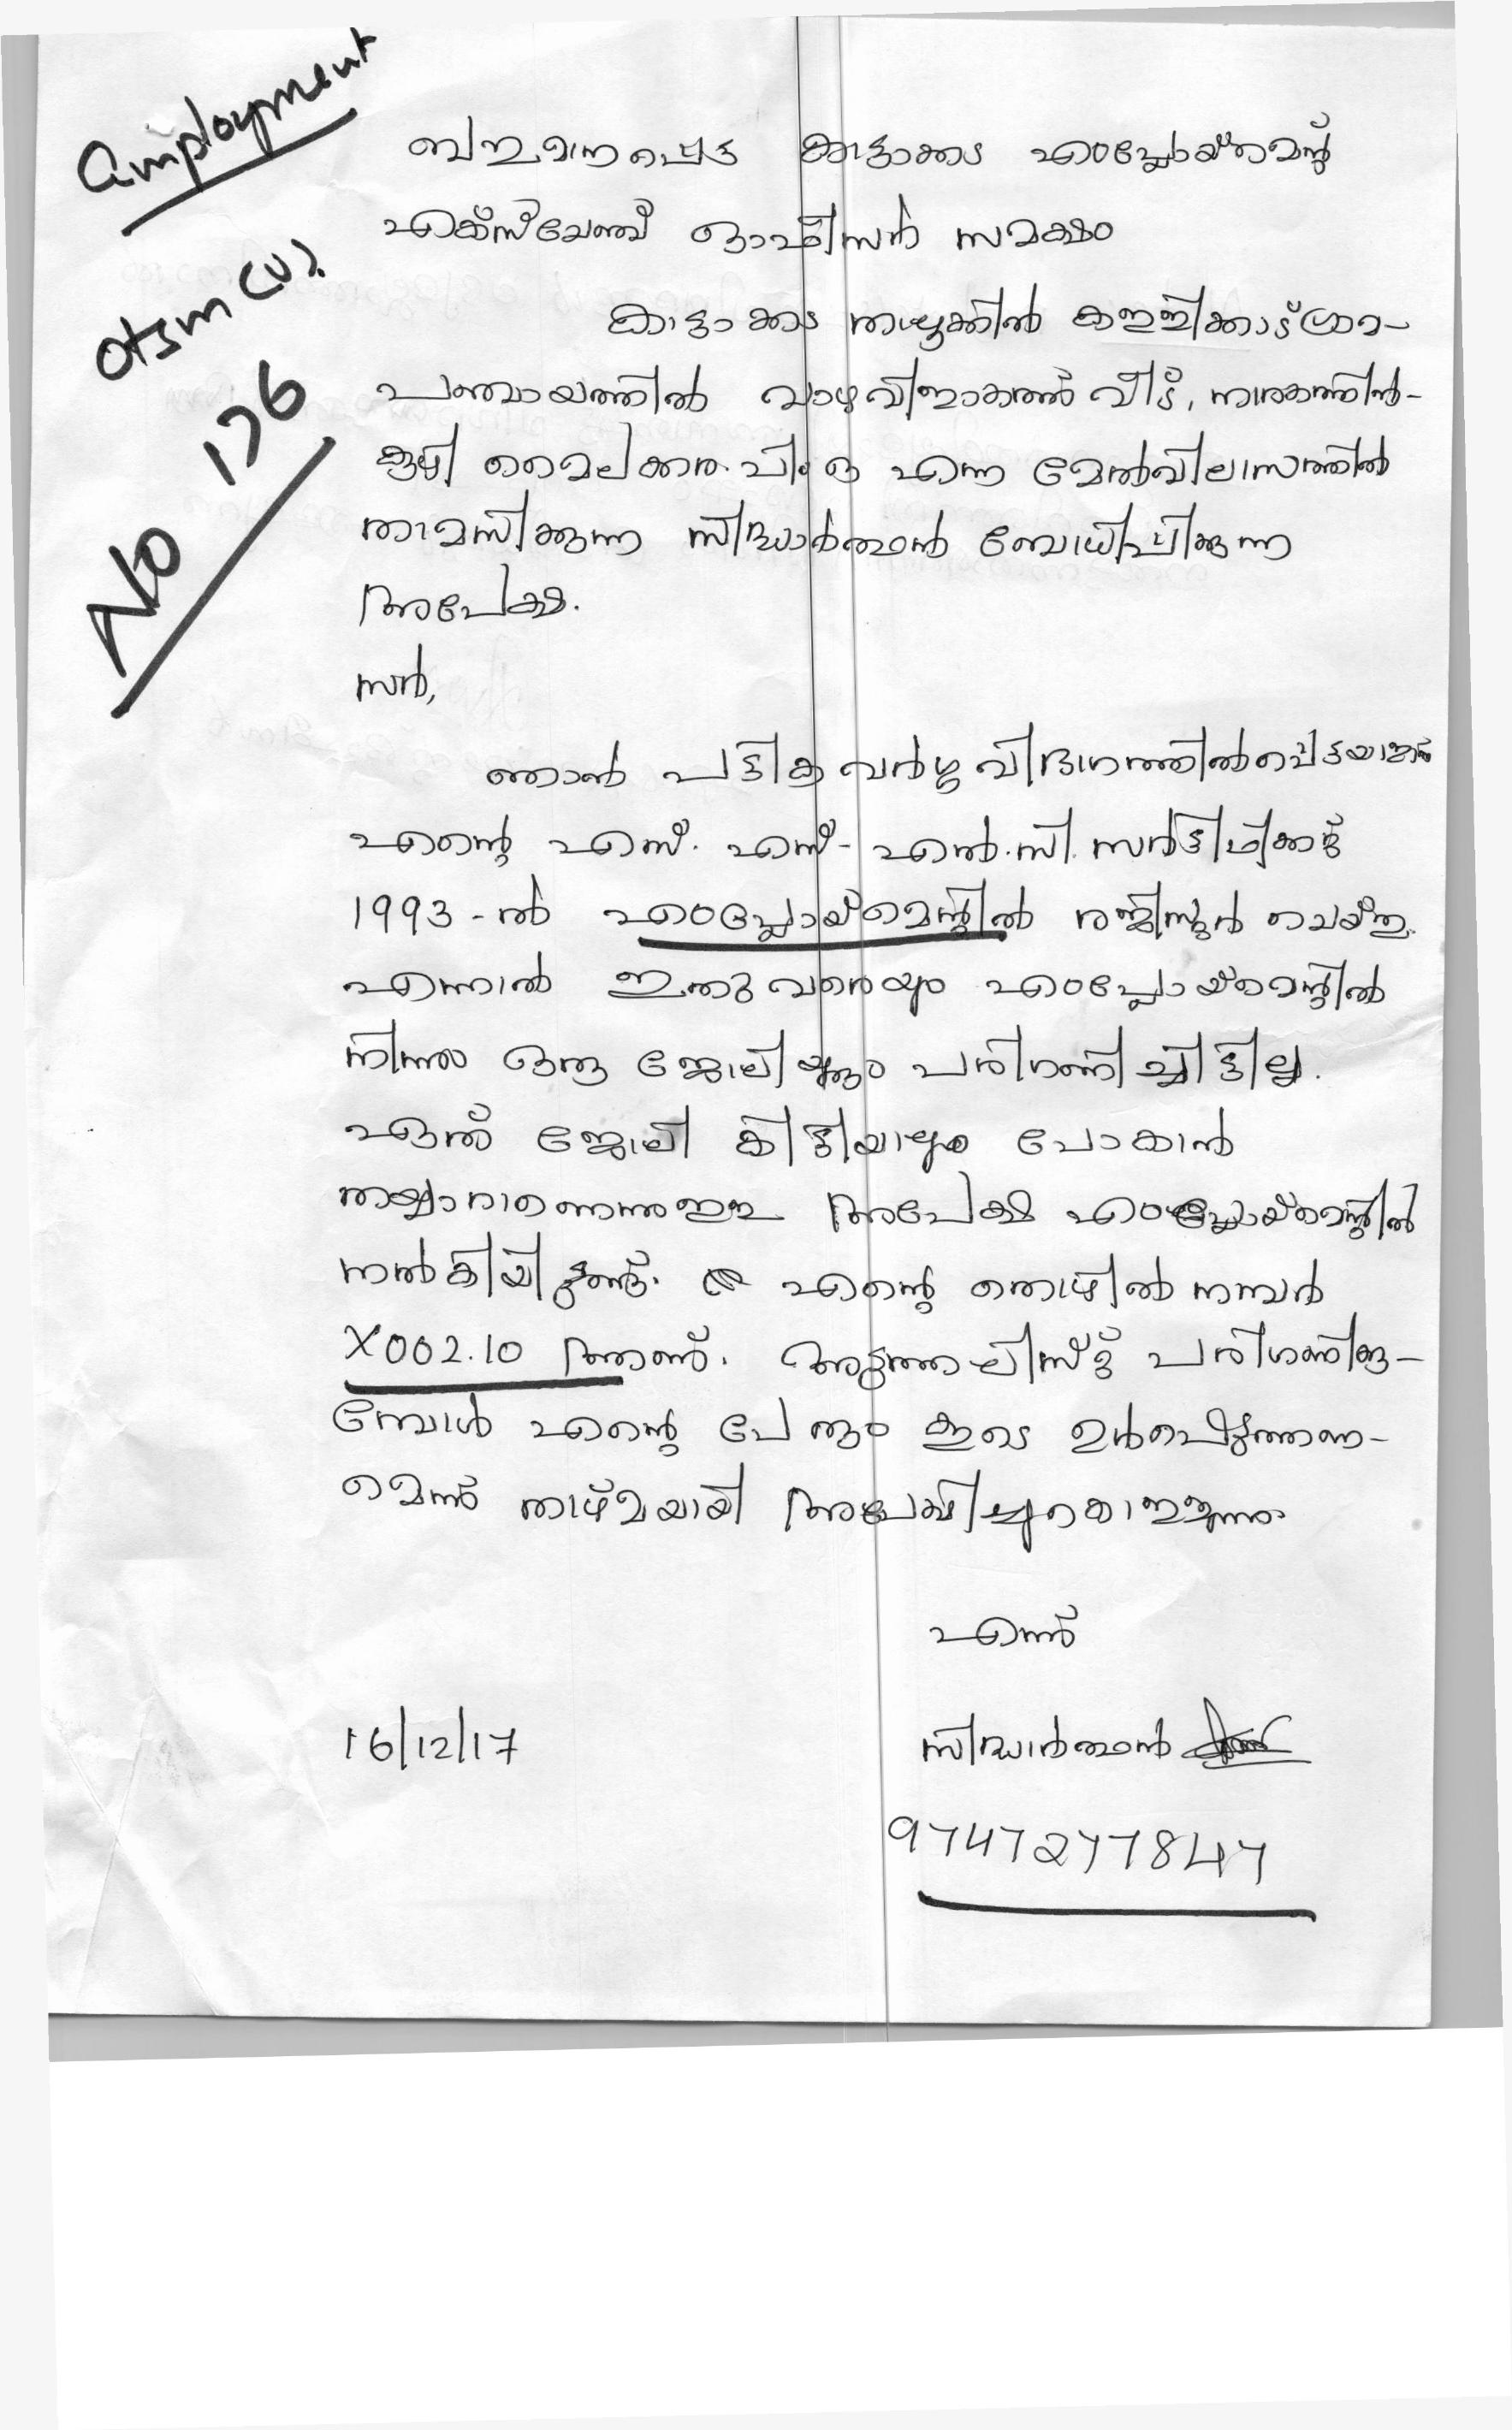 amployment
otsm (U).
No 176
ബഹുമാനപ്പെട്ട കാട്ടാക്കട എംപ്ലോയ്മെന്റ്
എക്സ്ചേഞ്ച് ഓഫീസർ സമക്ഷം
കാട്ടാക്കട താലൂക്കിൽ കള്ളിക്കാട് ഗ്രാമ-
പഞ്ചായത്തിൽ വാഴവിളാകത്ത് വീട്, നാരകത്തിൻ-
കുഴി മൈലക്കര. പി. ഒ എന്ന മേൽവിലാസത്തിൽ
താമസിക്കുന്ന സിദ്ധാർത്ഥൻ ബോധിപ്പിക്കുന്ന
അപേക്ഷ.
സർ,
ഞാൻ പട്ടിക വർഗ്ഗ വിഭാഗത്തിൽപ്പെട്ടയാളാണ്
എന്റെ എസ്. എസ്- എൽ.സി. സർട്ടിഫിക്കറ്റ്
1993 - ൽ എംപ്ലോയ്മെന്റിൽ രജിസ്റ്റർ ചെയ്തു.
എന്നാൽ ഇതുവരെയും എംപ്ലോയ്മെന്റിൽ
നിന്നും ഒരു ജോലിയും പരിഗണിച്ചിട്ടില്ല.
ഏത് ജോലി കിട്ടിയാലും പോകാൻ
തയ്യാറാണെന്നുള്ള അപേക്ഷ എംപ്ലോയ്മെന്റിൽ
നൽകിയിട്ടുണ്ട്. എന്റെ തൊഴിൽ നമ്പർ
X002.10 ആണ്. അടുത്ത ലിസ്റ്റ് പരിഗണിക്കു-
മ്പോൾ എന്റെ പേരും കൂടെ ഉൾപ്പെടുത്തണ-
മെന്ന് താഴ്മയായി അപേക്ഷിച്ചുകൊള്ളുന്നു.
എന്ന്
16/12/17
സിദ്ധാർത്ഥൻ
9747277847